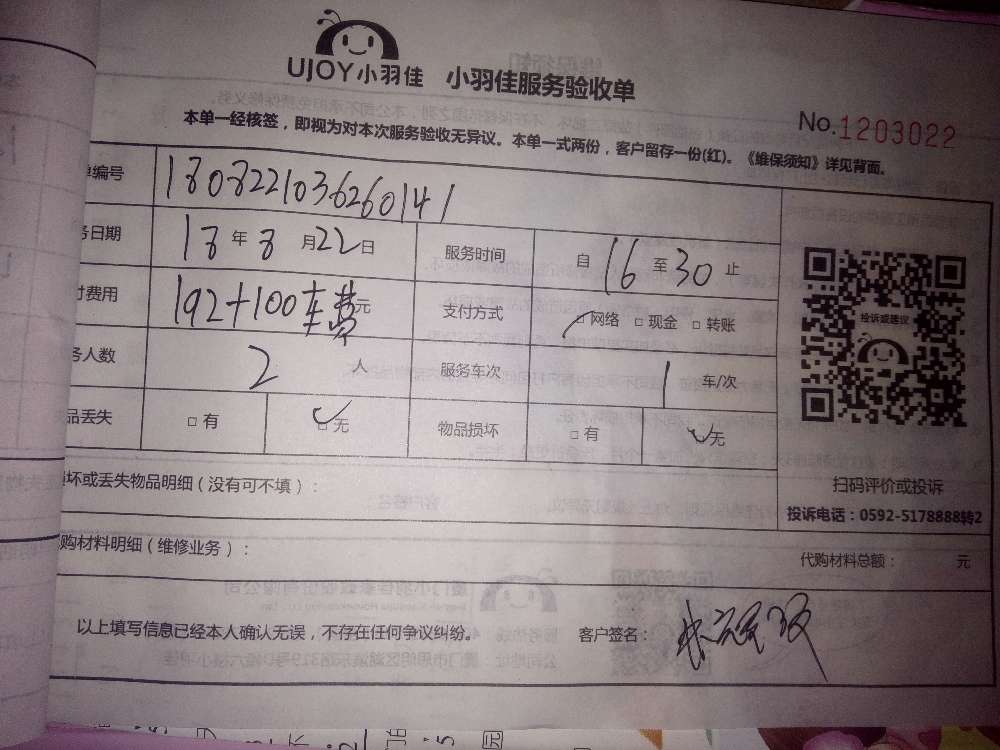 UJOY小羽佳 小羽佳服务验收单
No.1203022
本单一经核签，即视为对本次服务验收无异议。本单一式两份，客户留存一份(红)。《维保须知》详见背面。
单编号 180822103626014 1
务日期 18 年 8 月 22 日 服务时间 自 16 至 30 止
付费用 192+100车费 元 支付方式 □网络 □现金 □转账
务人数 2 人 服务车次 1 车/次
品丢失 □有 □无 物品损坏 □有 □无
投诉或建议
扫码评价或投诉
投诉电话：0592-5178888转2
损坏或丢失物品明细（没有可不填）：
购材料明细（维修业务）：
代购材料总额： 元
以上填写信息已经本人确认无误，不存在任何争议纠纷。 客户签名：